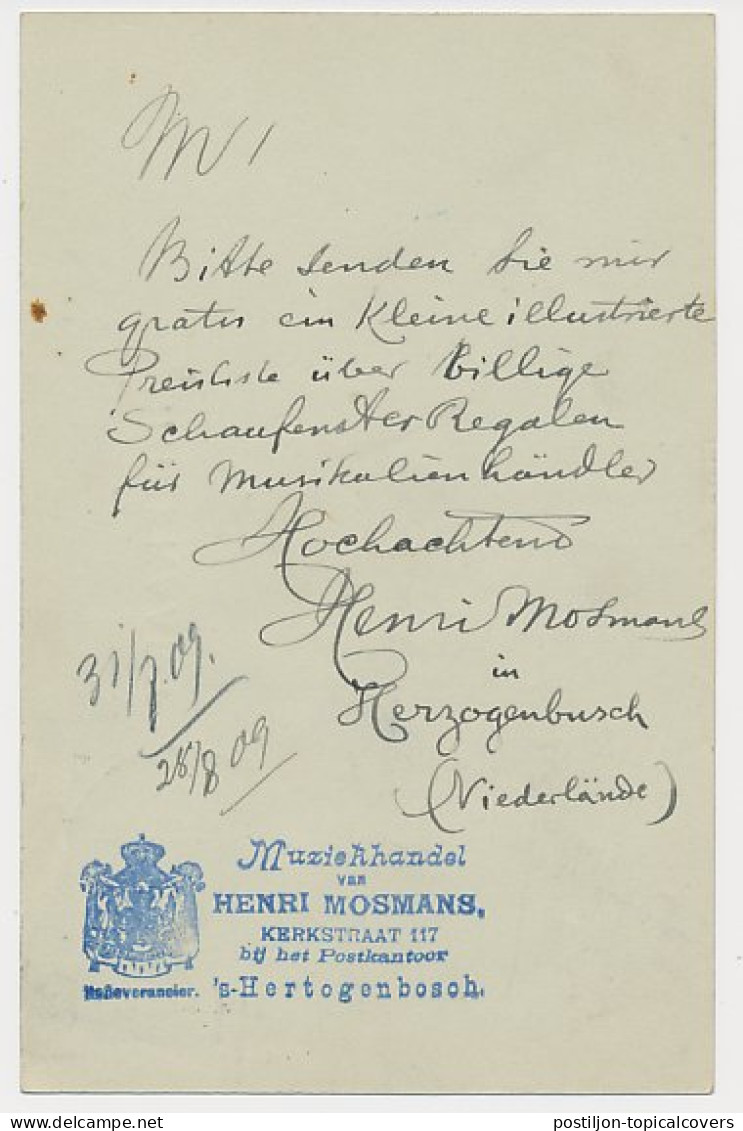 Bitte senden Sie mir
gratis ein Kleine illustrierte
Preisliste über billige
Schaufenster Regalen
für Musikalienhändler
Hochachtend
Henri Mosmans
in
Herzogenbusch
(Niederlände)
31/7.09.
28/8 09
Muziekhandel
van
HENRI MOSMANS,
KERKSTRAAT 117
bij het Postkantoor
Hofleverancier. 's-Hertogenbosch.
postiljon-topicalcovers